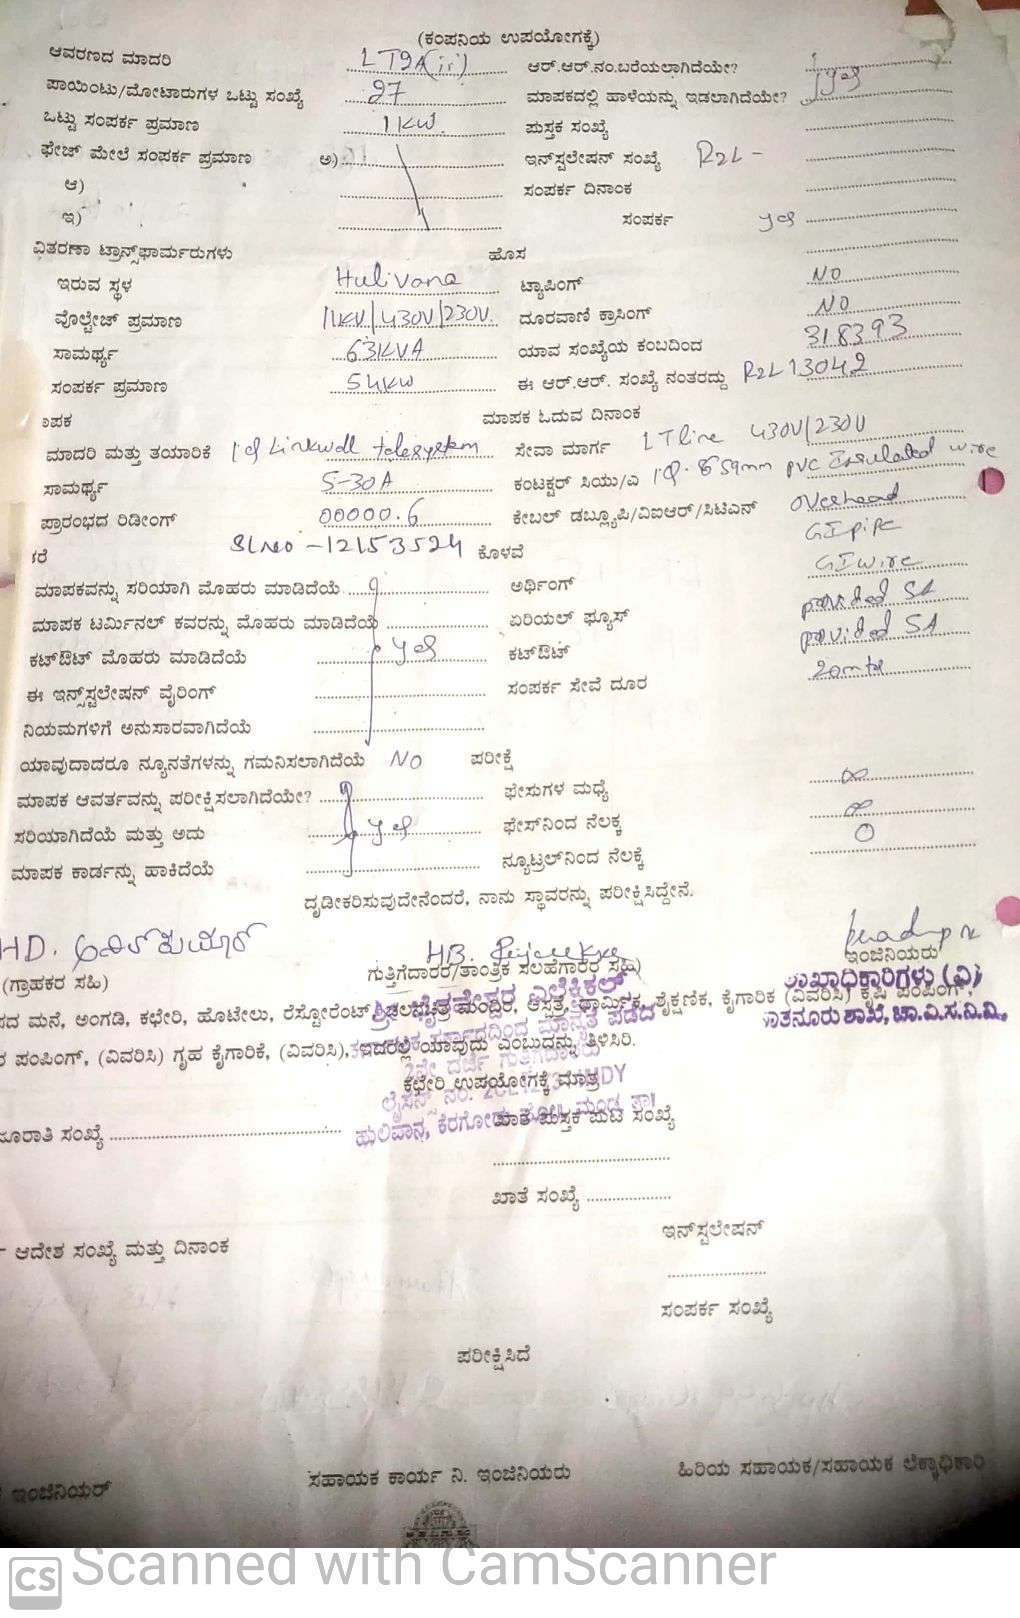 (ಕಂಪನಿಯ ಉಪಯೋಗಕ್ಕೆ)
ಆವರಣದ ಮಾದರಿ LT2A(ii) ಆರ್.ಆರ್.ನಂ.ಬರೆಯಲಾಗಿದೆಯೇ? yes
ಪಾಯಿಂಟು/ಮೋಟಾರುಗಳ ಒಟ್ಟು ಸಂಖ್ಯೆ 27 ಮಾಪಕದಲ್ಲಿ ಹಾಳೆಯನ್ನು ಇಡಲಾಗಿದೆಯೇ?
ಒಟ್ಟು ಸಂಪರ್ಕ ಪ್ರಮಾಣ 1 KW ಪುಸ್ತಕ ಸಂಖ್ಯೆ
ಫೇಜ್ ಮೇಲೆ ಸಂಪರ್ಕ ಪ್ರಮಾಣ ಅ) ಇನ್‌ಸ್ಟಲೇಷನ್ ಸಂಖ್ಯೆ R2L -
ಆ) ಸಂಪರ್ಕ ದಿನಾಂಕ
ಇ) ಸಂಪರ್ಕ yes
ವಿತರಣಾ ಟ್ರಾನ್ಸ್‌ಫಾರ್ಮರುಗಳು ಹೊಸ
ಇರುವ ಸ್ಥಳ Hulivana ಟ್ಯಾಪಿಂಗ್ NO
ವೊಲ್ಟೇಜ್ ಪ್ರಮಾಣ 11KV/430V/230V. ದೂರವಾಣಿ ಕ್ರಾಸಿಂಗ್ NO
ಸಾಮರ್ಥ್ಯ 63KVA ಯಾವ ಸಂಖ್ಯೆಯ ಕಂಬದಿಂದ 318393
ಸಂಪರ್ಕ ಪ್ರಮಾಣ 54KW ಈ ಆರ್.ಆರ್. ಸಂಖ್ಯೆ ನಂತರದ್ದು R2L 13042
ಾಪಕ ಮಾಪಕ ಓದುವ ದಿನಾಂಕ
ಮಾದರಿ ಮತ್ತು ತಯಾರಿಕೆ Linkwell telesystem ಸೇವಾ ಮಾರ್ಗ LT line 430V/230V
ಸಾಮರ್ಥ್ಯ 5-30A ಕಂಟಕ್ಟರ್ ಸಿಯು/ಎ pvc Insulated wire
ಪ್ರಾರಂಭದ ರಿಡೀಂಗ್ 00000.6 ಕೇಬಲ್ ಡಬ್ಲ್ಯೂಪಿ/ವಿಐಆರ್/ಸಿಟಿಎನ್ overhead
ರೆ Sl.no - 12153524 ಕೊಳವೆ GI pipe
ಮಾಪಕವನ್ನು ಸರಿಯಾಗಿ ಮೊಹರು ಮಾಡಿದೆಯೆ ಅರ್ಥಿಂಗ್ GI wire
ಮಾಪಕ ಟರ್ಮಿನಲ್ ಕವರನ್ನು ಮೊಹರು ಮಾಡಿದೆಯೆ ಏರಿಯಲ್ ಫ್ಯೂಸ್ provided 5A
ಕಟ್‌ಔಟ್ ಮೊಹರು ಮಾಡಿದೆಯೆ yes ಕಟ್‌ಔಟ್ provided 5A
ಈ ಇನ್ಸ್‌ಸ್ಟಲೇಷನ್ ವೈರಿಂಗ್ ಸಂಪರ್ಕ ಸೇವೆ ದೂರ 20mtr
ನಿಯಮಗಳಿಗೆ ಅನುಸಾರವಾಗಿದೆಯೆ
ಯಾವುದಾದರೂ ನ್ಯೂನತೆಗಳನ್ನು ಗಮನಿಸಲಾಗಿದೆಯೆ NO ಪರೀಕ್ಷೆ
ಮಾಪಕ ಆವರ್ತವನ್ನು ಪರೀಕ್ಷಿಸಲಾಗಿದೆಯೇ? ಫೇಸುಗಳ ಮಧ್ಯೆ ∞
ಸರಿಯಾಗಿದೆಯೆ ಮತ್ತು ಅದು yes ಫೇಸ್‌ನಿಂದ ನೆಲಕ್ಕೆ ∞
ಮಾಪಕ ಕಾರ್ಡನ್ನು ಹಾಕಿದೆಯೆ ನ್ಯೂಟ್ರಲ್‌ನಿಂದ ನೆಲಕ್ಕೆ 0
ದೃಢೀಕರಿಸುವುದೇನೆಂದರೆ, ನಾನು ಸ್ಥಾವರನ್ನು ಪರೀಕ್ಷಿಸಿದ್ದೇನೆ.
HD. HB.
(ಗ್ರಾಹಕರ ಸಹಿ) ಗುತ್ತಿಗೆದಾರರ/ತಾಂತ್ರಿಕ ಸಲಹೆಗಾರರ ಸಹಿ) ಇಂಜಿನಿಯರು
ಶಾಖಾಧಿಕಾರಿಗಳು (ವಿ)
ಪದ ಮನೆ, ಅಂಗಡಿ, ಕಛೇರಿ, ಹೊಟೇಲು, ರೆಸ್ಟೋರೆಂಟ್, ಚಲನಚಿತ್ರ ಮಂದಿರ, ಆಸ್ಪತ್ರೆ, ಧಾರ್ಮಿಕ, ಶೈಕ್ಷಣಿಕ, ಕೈಗಾರಿಕೆ (ವಿವರಿಸಿ) ಕೃಷಿ ಪಂಪಿಂಗ್,
ಸಾತನೂರು ಶಾಖೆ, ಚಾ.ವಿ.ಸ.ನಿ.ನಿ.
ರ ಪಂಪಿಂಗ್, (ವಿವರಿಸಿ) ಗೃಹ ಕೈಗಾರಿಕೆ, (ವಿವರಿಸಿ), ಇದರಲ್ಲಿ ಯಾವುದು ಎಂಬುದನ್ನು ತಿಳಿಸಿರಿ.
ಕಛೇರಿ ಉಪಯೋಗಕ್ಕೆ ಮಾತ್ರ
ಜೂರಾತಿ ಸಂಖ್ಯೆ ಖಾತೆ ಪುಸ್ತಕ ಪುಟ ಸಂಖ್ಯೆ
ಹುಲಿವಾನ, ಕೆರಗೋಡು
ಖಾತೆ ಸಂಖ್ಯೆ
ಇನ್‌ಸ್ಟಲೇಷನ್
ಆದೇಶ ಸಂಖ್ಯೆ ಮತ್ತು ದಿನಾಂಕ
ಸಂಪರ್ಕ ಸಂಖ್ಯೆ
ಪರೀಕ್ಷಿಸಿದೆ
ಇಂಜಿನಿಯರ್ ಸಹಾಯಕ ಕಾರ್ಯ ನಿ. ಇಂಜಿನಿಯರು ಹಿರಿಯ ಸಹಾಯಕ/ಸಹಾಯಕ ಲೆಕ್ಕಾಧಿಕಾರಿ
CS Scanned with CamScanner